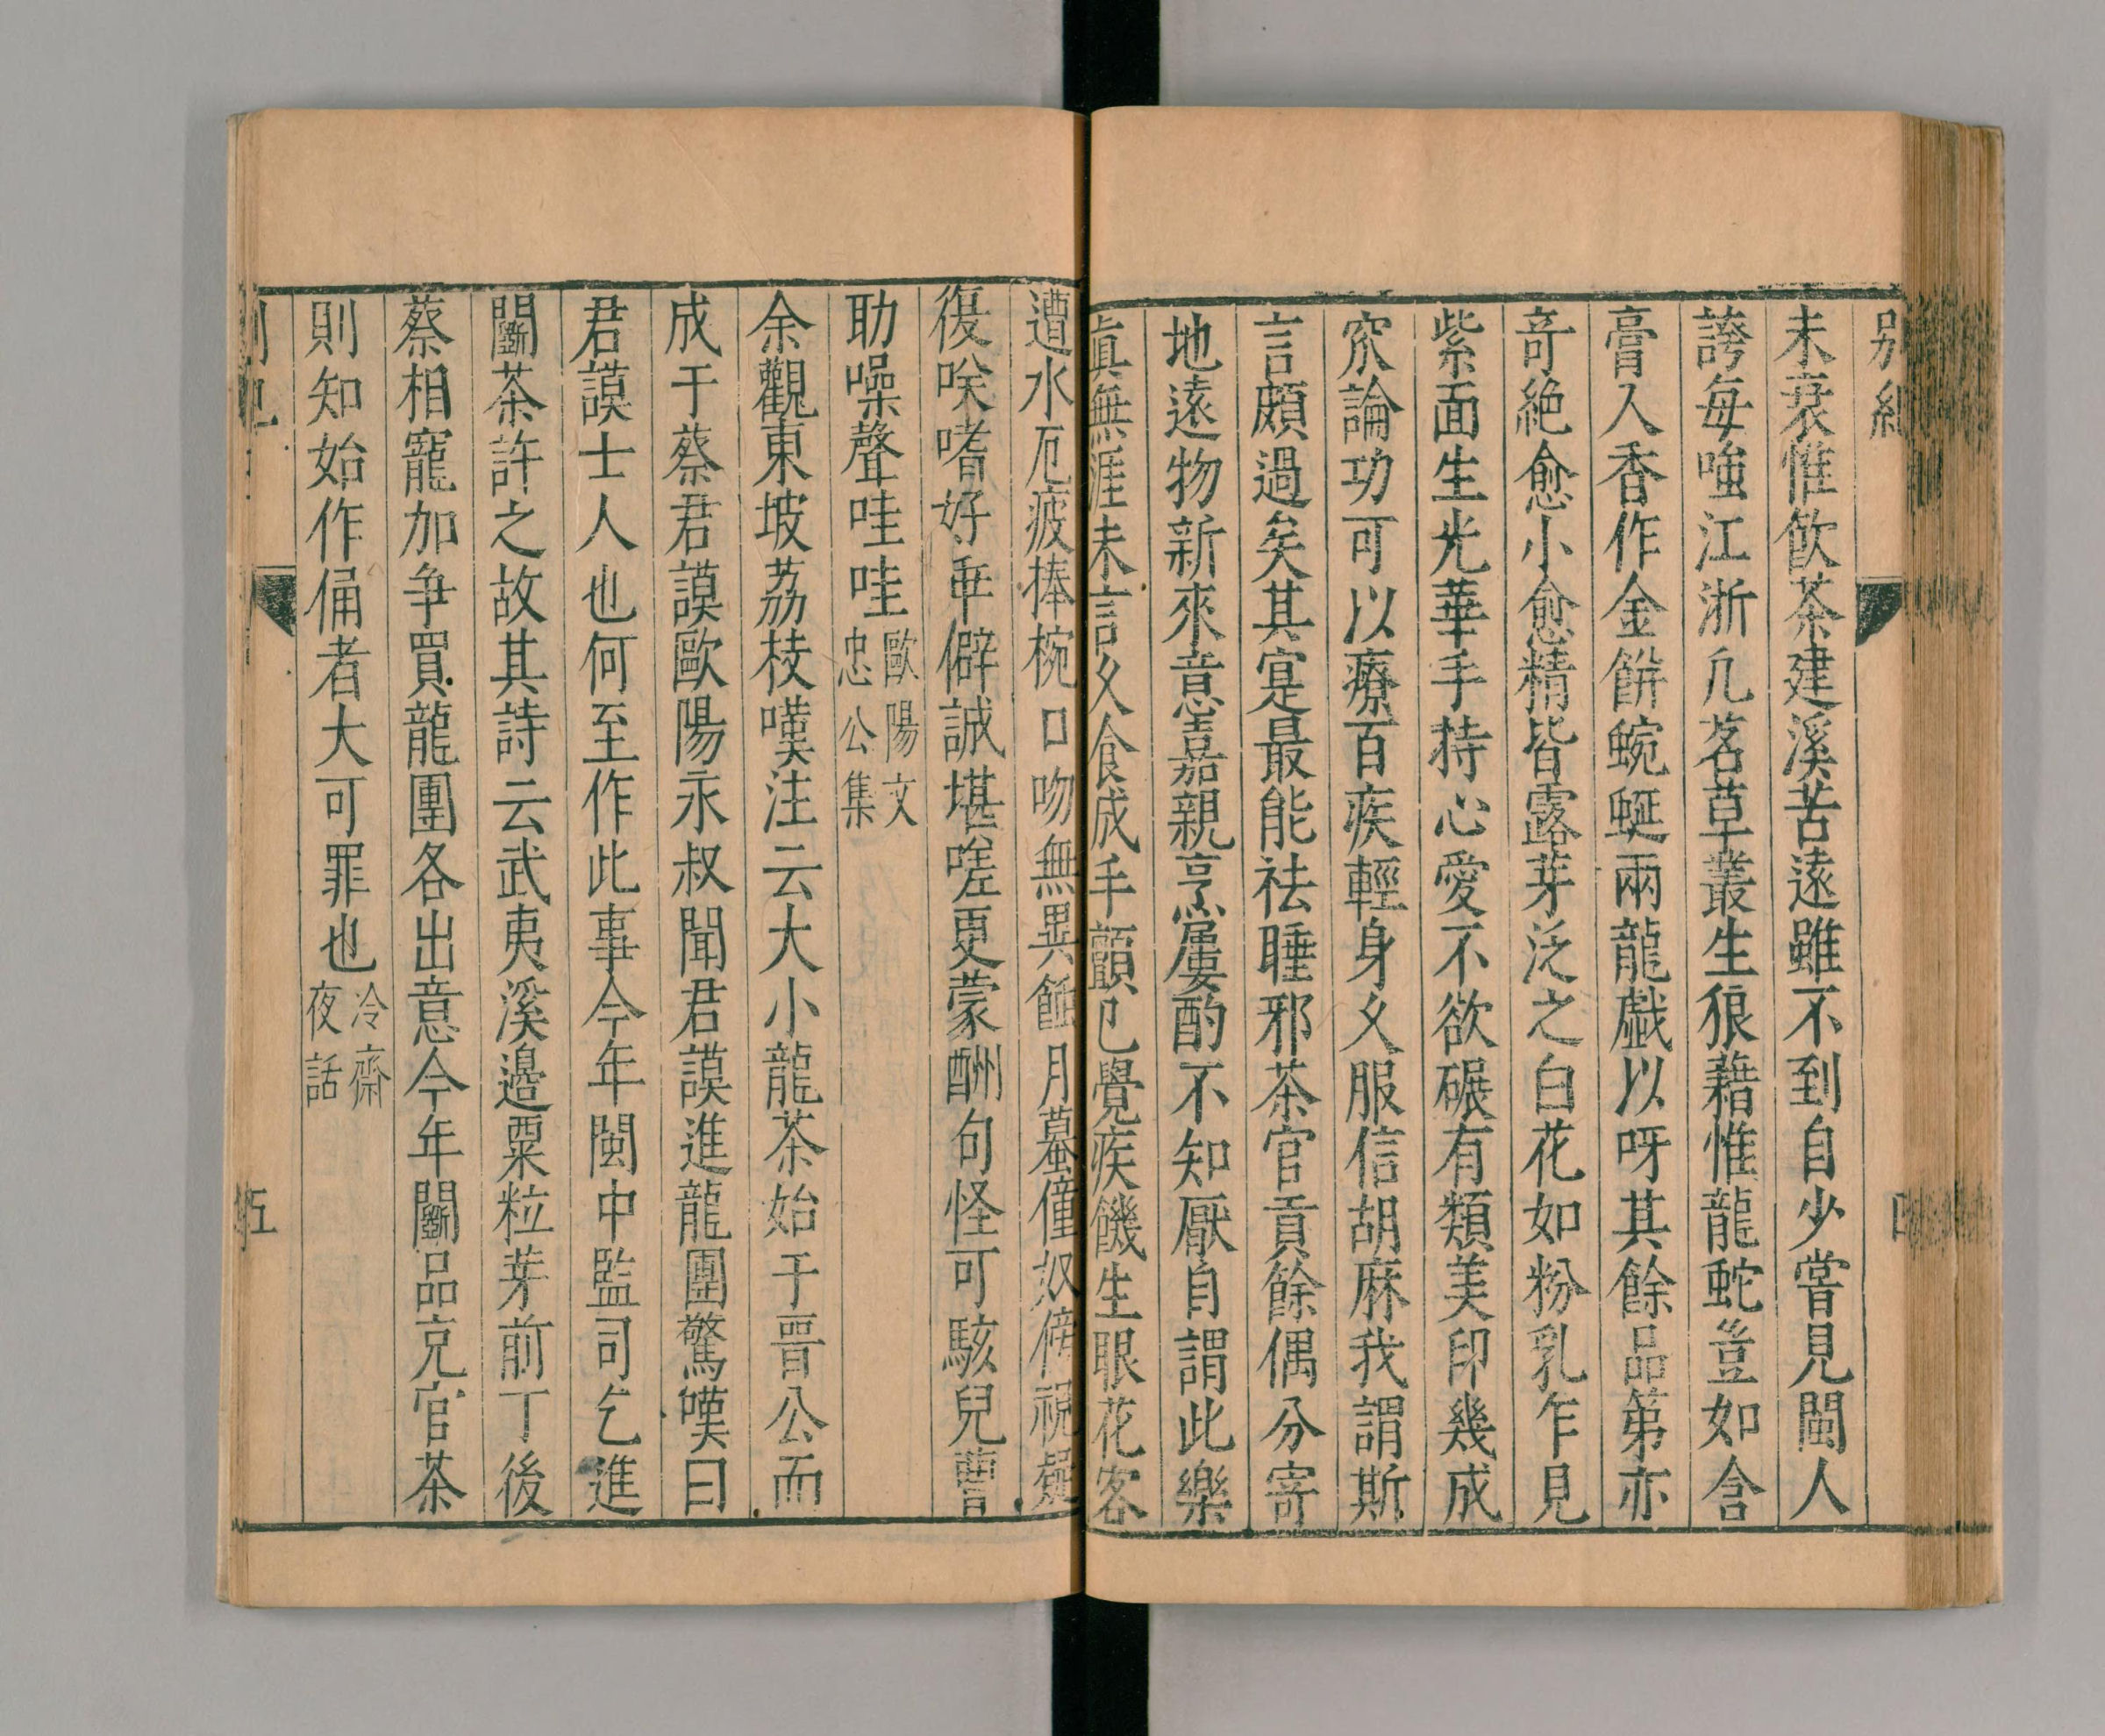 別紀 四
未衰惟飲茶建溪苦遠雖不到自少嘗見閩人
誇每嗤江浙凢茗草叢生狼藉惟龍蛇豈如含
膏入香作金餅蜿蜒兩龍戯以呀其餘品第亦
竒絶愈小愈精皆露芽泛之白花如粉乳乍見
紫面生光華手持心愛不欲碾有類美印幾成
窊論功可以療百疾輕身久服信胡麻我謂斯
言頗過矣其寔最能祛睡邪茶官貢餘偶分寄
地逺物新來意嘉親烹屢酌不知厭自謂此樂
眞無涯未言久食成手顫已覺疾饑生眼花客
遭水厄疲捧椀口吻無異蝕月蟇僮奴傍視疑
復咲嗜好乖僻誠堪嗟更蒙酬句怪可駭兒曹
助噪聲哇哇歐陽文忠公集
余觀東坡荔枝嘆注云大小龍茶始于晋公而
成于蔡君謨歐陽永叔聞君謨進龍團驚嘆曰
君謨士人也何至作此事今年閩中監司乞進
鬭茶許之故其詩云武夷溪邊粟粒芽前丁後
蔡相寵加争買龍團各出意今年鬭品充官茶
則知始作俑者大可罪也冷齋夜話
五